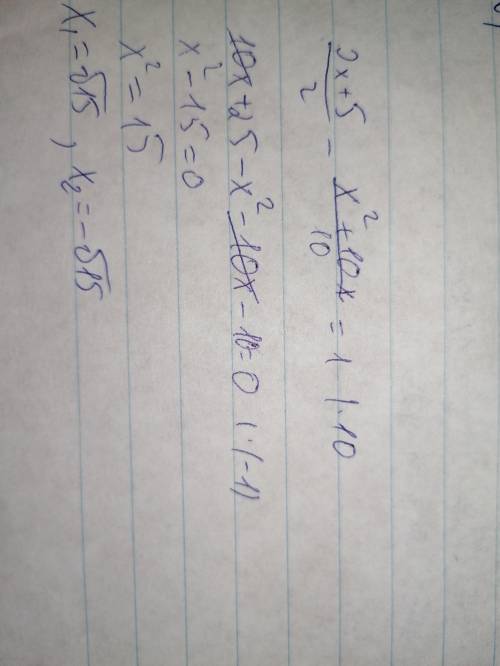 (2x+5)/2 - (x²+10x)/10 = 1 | · 10
10x+25-x²-10x-10=0 | · (-1)
x²-15=0
x²=15
x₁=√15, x₂=-√15